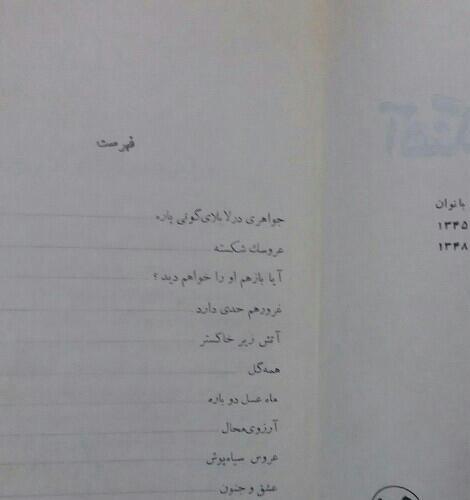 بانوان
۱۳۴۵
۱۳۴۸
فهرست
جواهری در لابلای گونی پاره
عروسك شکسته
آیا بازهم او را خواهم دید ؟
غرورهم حدی دارد
آتش زیر خاکستر
همه‌گل
ماه عسل دو باره
آرزوی‌محال
عروس سیاه‌پوش
عشق و جنون